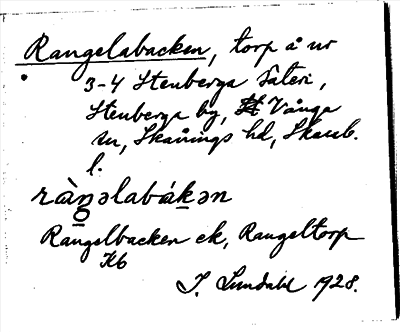 Rangelabacken, torp å nr
3-4 Stenberga Säteri,
Stenberga by, Vånga
sn, Skånings hd, Skarab.
l.
ràŋəlabákən
Rangelbacken ek, Rangeltorp
Kb
J. Lundahl 1928.